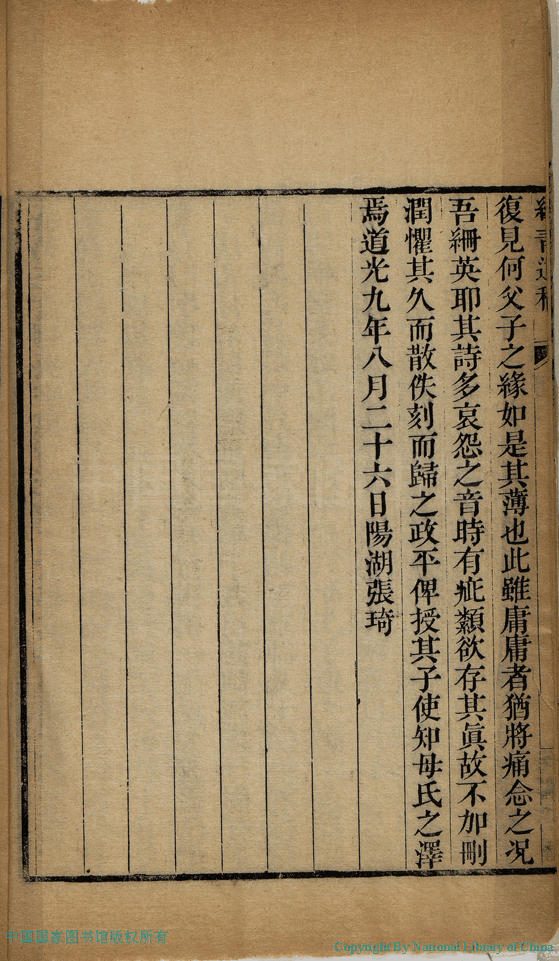 復見何父子之緣如是其薄也此雖庸庸者猶將痛念之况
吾緗英耶其詩多哀怨之音時有疵纇欲存其眞故不加刪
潤懼其久而散佚刻而歸之政平俾授其子使知母氏之澤
焉道光九年八月二十六日陽湖張琦
中国国家图书馆版权所有
Copyright By National Library of China